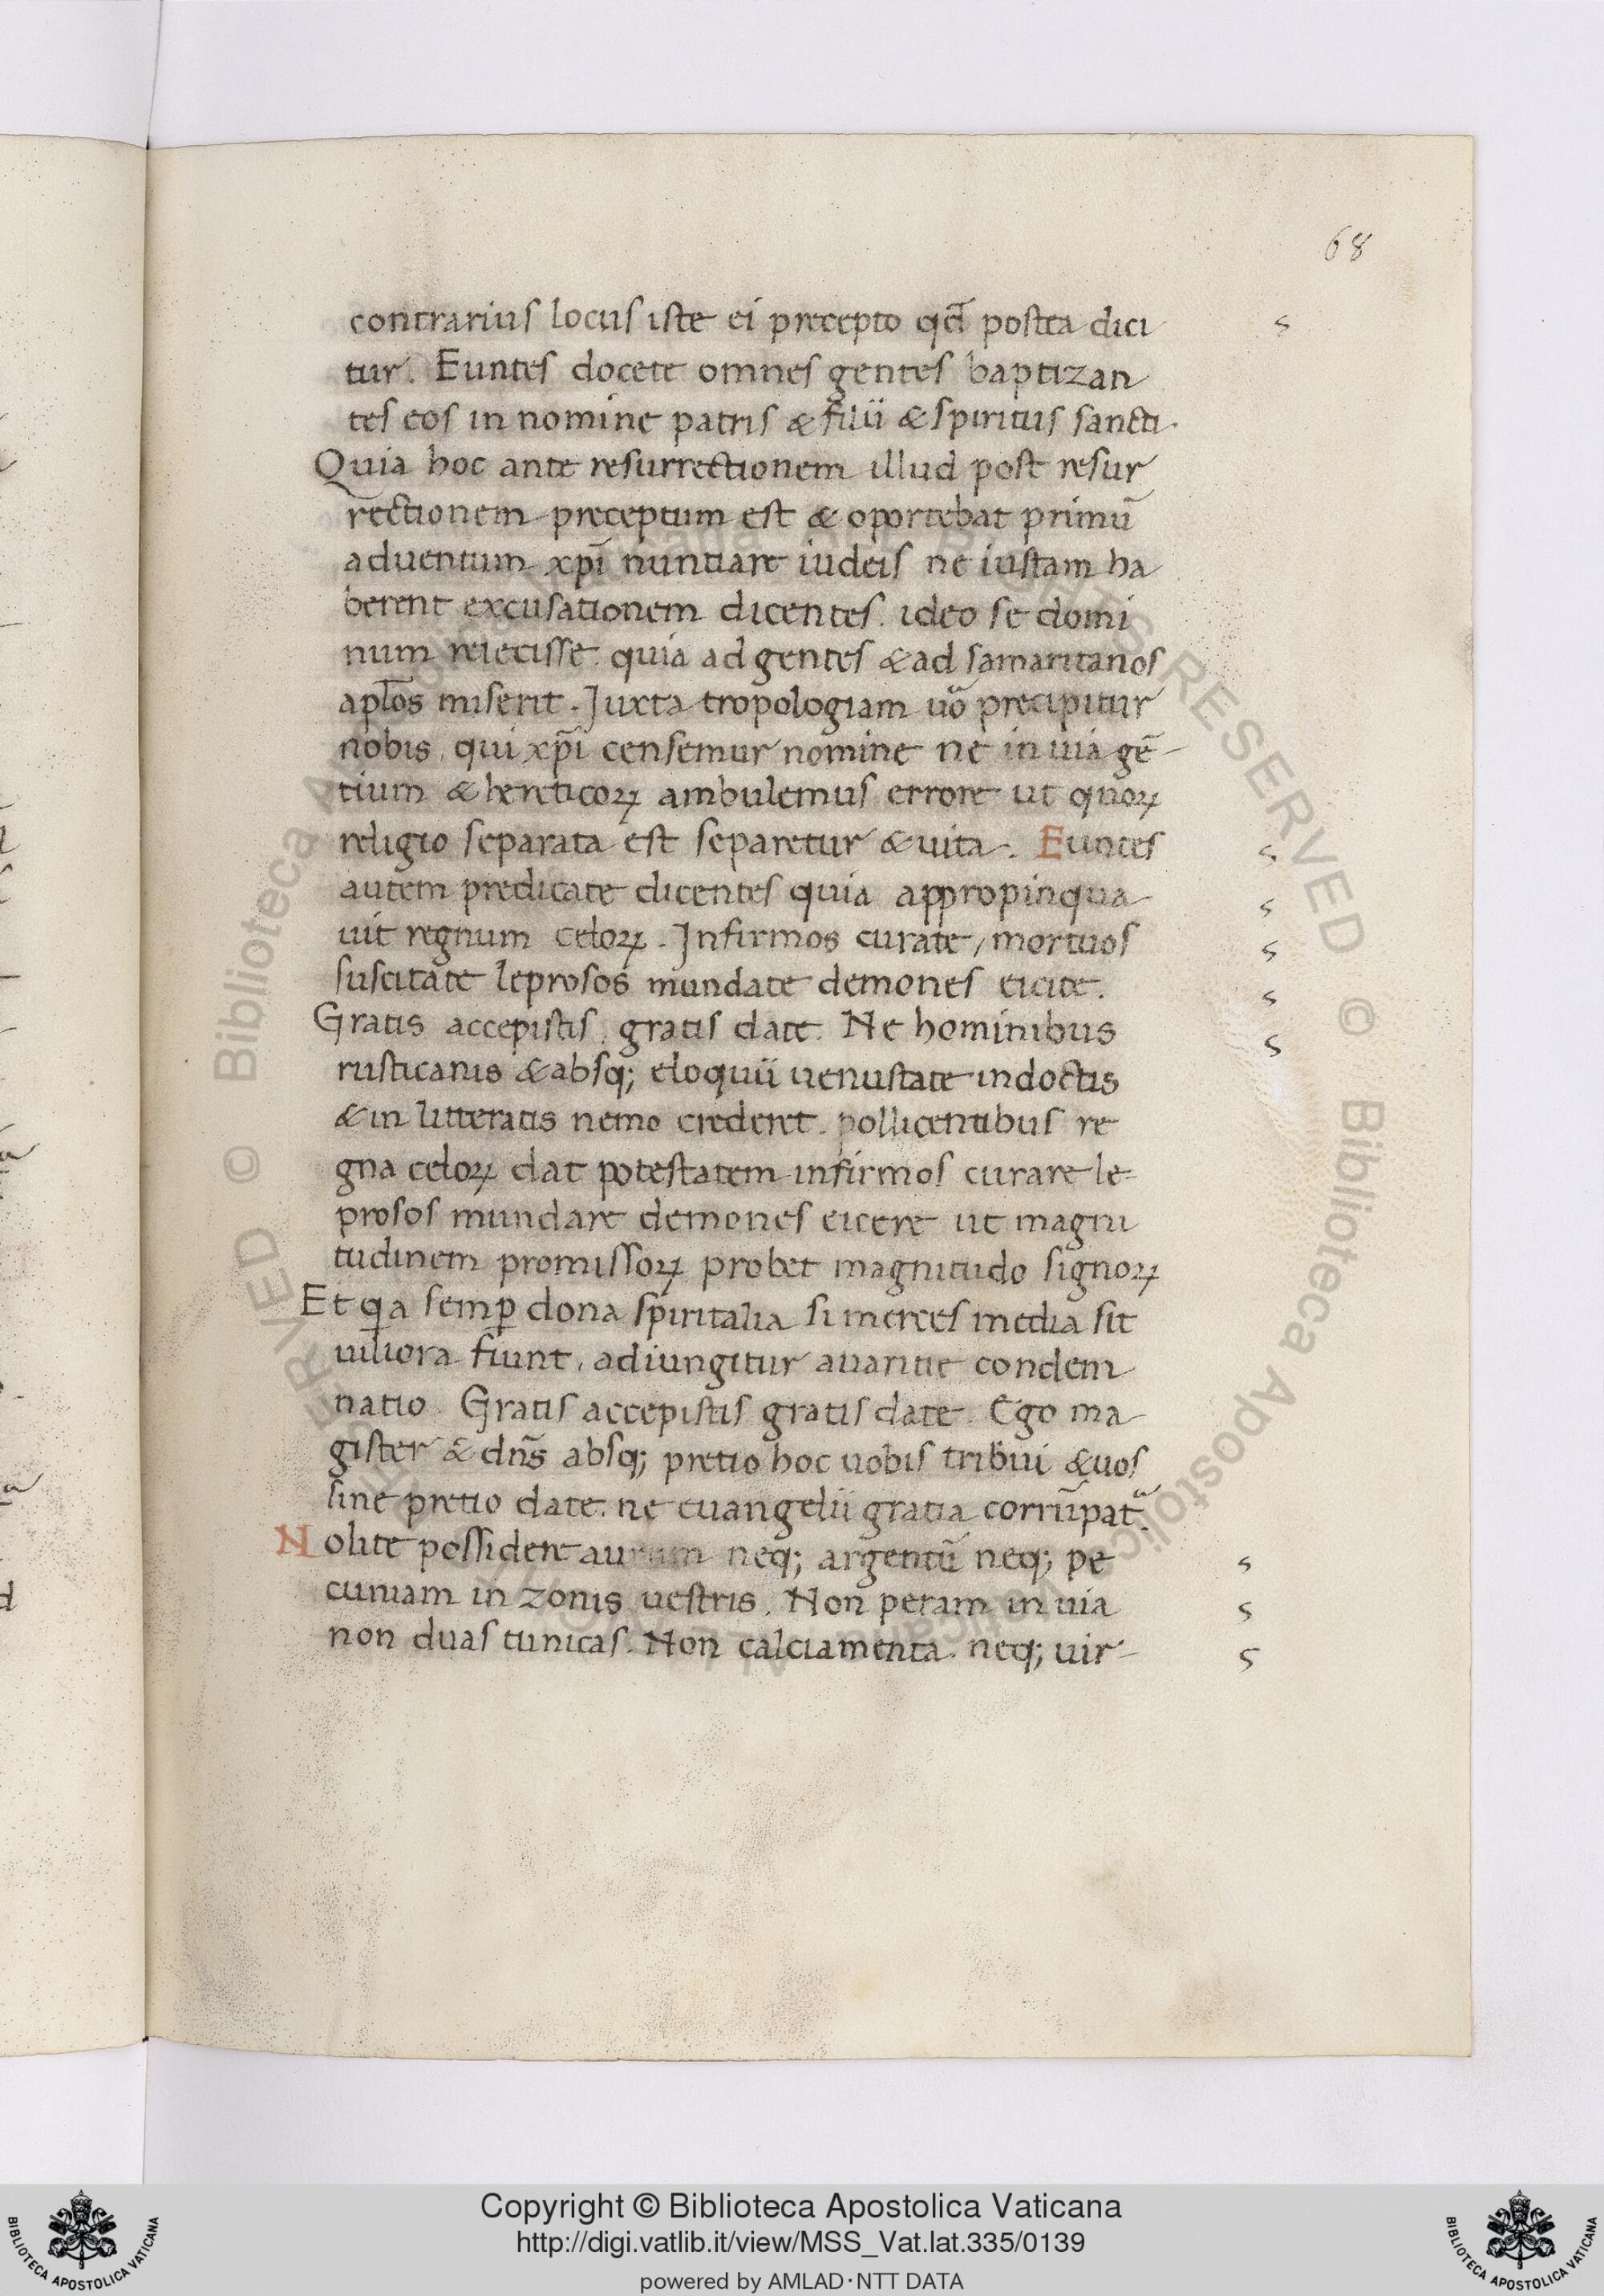 68
contrarius locus iste ei precepto qd̄ postea dici
tur. Euntes docete omnes gentes baptizan
tes eos in nomine patris & filii & spiritus sancti.
Quia hoc ante resurrectionem illud post resur
rectionem preceptum est & oportebat primū
aduentum xp̄i nuntiare iudeis ne iustam ha
berent excusationem dicentes. ideo se domi
num reiecisse. quia ad gentes & ad samaritanos
apl̄os miserit. Juxta tropologiam uͦo precipitur
nobis. qui xp̄i censemur nomine ne in uia gē-
tium & hereticoꝝ ambulemus errore ut quoꝝ
religio separata est separetur & uita. Euntes
autem predicate dicentes quia appropinqua
uit regnum celoꝝ. Infirmos curate, mortuos
suscitate leprosos mundate demones eicite.
Gratis accepistis. gratis date. Ne hominibus
rusticanis & absq; eloquii uenustate indoctis
& in litteratis nemo crederet. pollicentibus re
gna celoꝝ dat potestatem infirmos curare le-
prosos mundare demones eicere ut magni
tudinem promissoꝝ probet magnitudo signoꝝ
Et qͥa semꝑ dona spiritalia si merces media sit
uiliora fiunt. adiungitur auaritie condem
natio. Gratis accepistis gratis date. Ego ma
gister & dn̄s absq; pretio hoc uobis tribui & uos
sine pretio date. ne euangelii gratia corrūpat᷑.
Nolite possidere aurum neq; argentū neq; pe
cuniam in zonis uestris. Non peram in uia
non duas tunicas. Non calciamenta. neq; uir-
Copyright © Biblioteca Apostolica Vaticana
http://digi.vatlib.it/view/MSS_Vat.lat.335/0139
powered by AMLAD·NTT DATA
BIBLIOTECA APOSTOLICA VATICANA
BIBLIOTECA APOSTOLICA VATICANA